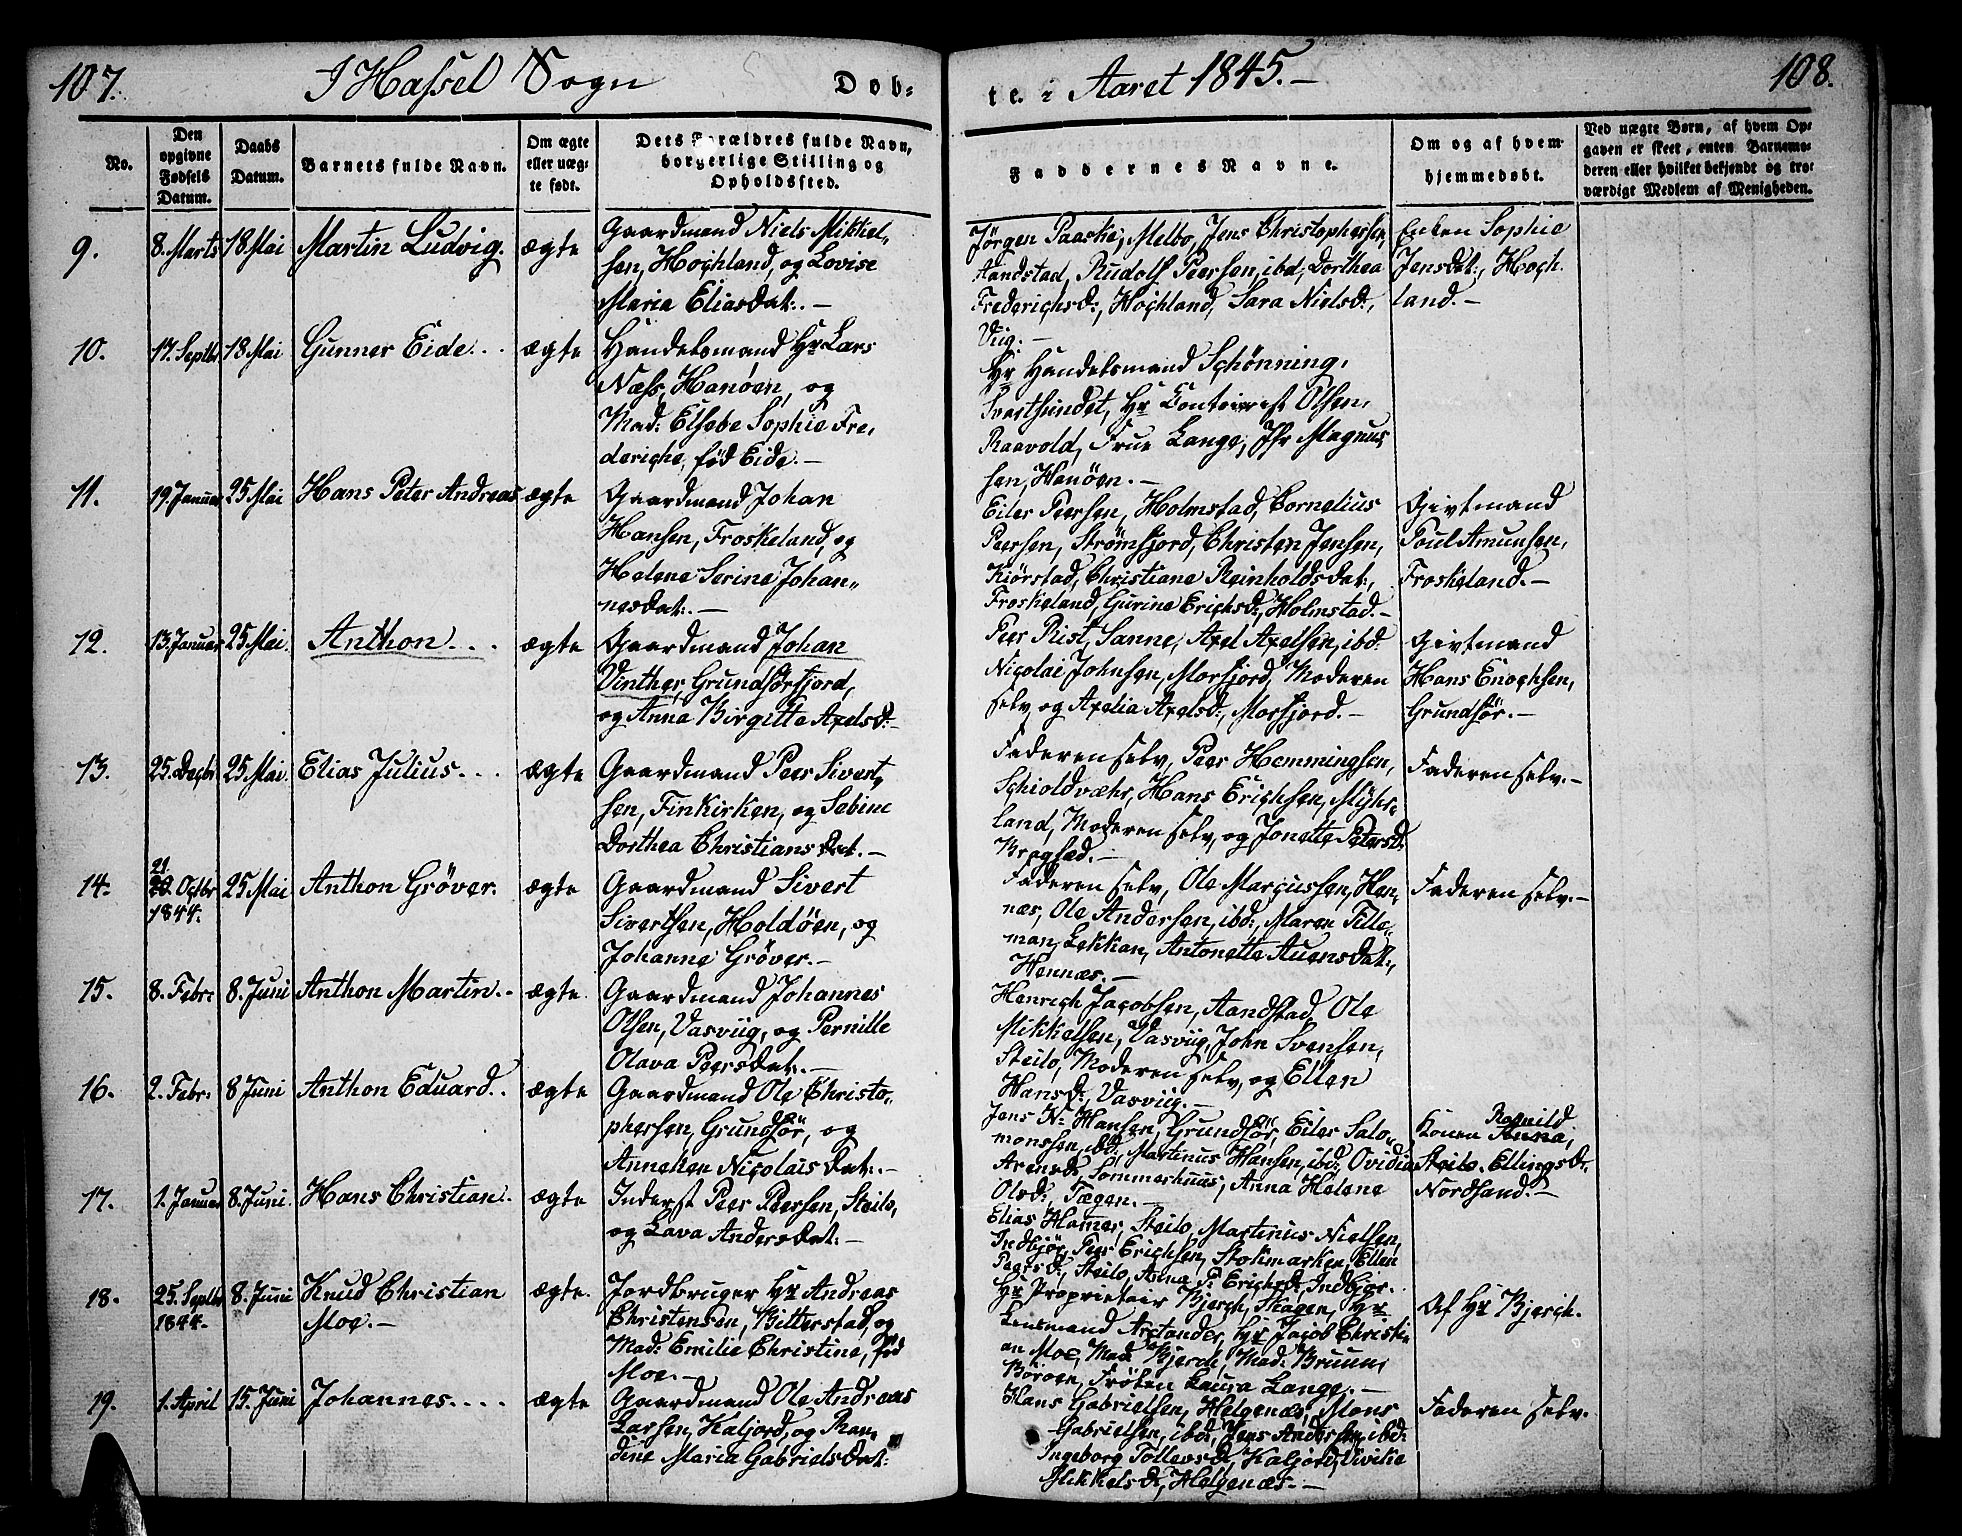 107.
I Hassel Sogn
Døb-
te i Aaret 1845.-
108.
No.
Den opgivne Fødsels Datum.
Daabs Datum.
Barnets fulde Navn.
Om ægte eller uægte født.
Dets Forældres fulde Navn, borgerlige Stilling og Opholdssted.
Faddernes Navne.
Om og af hvem hjemmedøbt.
Ved uægte Børn, af hvem Opgaven er skeet, enten Barnemoderen eller hvilket bekjendt og troværdigt Medlem af Menigheden.
9.
8. Marts
18 Mai
Martin Ludvig.
ægte
Gaardmand Niels Mikkel-
sen, Hochland, og Lovise
Maria Eliasdat:.-
Jørgen Paaske, Melbo, Jens Christophersen,
Sandstad, Rudolf Peersen, ibd, Dorthea
Frederichsd:, Hochland, Sara Nielsd:,
Viig.-
Enken Sophie
Jensdat:, Hoch-
land.-
10.
17. Septbr
18 Mai
Gunner Eide...
ægte
Handelsmand Hr Lars
Næss, Hanøen, og
Mad: Elsebe Sophie Fre-
deriche, fød Eide.-
Hr Handelsmand Schønning,
Svartsundet, Hr Contoirist Olsen,
Raavold, Frue Lange, Jfr Magnus
sen, Hanøen.-
11.
19. Januar
25 Mai
Hans Peter Andreas
ægte
Gaardmand Johan
Hansen, Froskeland, og
Helene Serine Johan-
nesdat:.-
Eiler Peersen, Holmstad, Cornelius
Peersen, Strømfjord, Christen Jensen,
Kiørstad, Christiane Reinholdsdat:,
Froskeland, Gurine Erichsd:, Holmstad.-
Givtmand
Poul Amunsen,
Froskeland.-
12.
13. Januar
25 Mai.
Anthon...
ægte
Gaardmand Johan
Vinther, Grundførfjord,
og Anna Birgitta Axelsd:-
Peer Rist, Sanne, Axel Axelsen, ibd:
Nicolai Johnsen, Morfjord, Moderen
selv, og Axelia Axelsd:, Morfjord.-
Givtmand
Hans Enochsen,
Grundfør.-
13.
25. Decbr
25 Mai.
Elias Julius...
ægte
Gaardmand Peer Sivert-
sen, Finkirken, og Sebine
Dorthea Christiansdat.-
Faderen selv, Peer Hemmingsen,
Schioldvæhr, Hans Erichsen, Myhr-
land, Moderen selv, og Jonette Petersd:
Faderen selv.-
14.
21
Octbr
1844.
25 Mai
Anthon Grøver.
ægte
Gaardmand Sivert
Sivertsen, Holdøen, og
Johanne Grøver.-
Faderen selv, Ole Marcussen, Hen-
næs, Ole Andersen, ibd:, Maren Tille-
man, Lekkan, Antonette Auensdat:,
Hennæs.-
Faderen selv.-
15.
8. Febr:
8. Juni
Anthon Martin..
ægte.
Gaardmand Johannes
Olsen, Vasviig, og Pernille
Olava Peersdat:.-
Henrich Jacobsen, Sandstad, Ole
Mikkelsen, Vasviig, John Svensen,
Steilo, Moderen selv, og Ellen
Hansd:, Vasviig.-
16.
2. Febr:
8 Juni
Anthon Eduard..
ægte
Gaardmand Ole Christo-
phersen, Grundfør, og
Anneken Nicolaisdat:.-
Jens N: Hansen, Grundfør, Eiler Salo-
monssen, ibd:, Martinus Hansen, ibd:, Ovidia
Arensd:, Sommerhuus, Anna Helene
Olsd:, Tægen.-
Konen Ragnild
Ellingsd:,
Nordsand.-
17.
1. Januar
8. Juni.
Hans Christian.
ægte
Inderst Peer Peersen, Steilo,
og Lava Andersdat:-
Elias Hamer, Steilo, Martinus Nielsen,
Indbjør, Peer Erichsen, Stokmarken, Ellen
Peersd:, Steilo, Anna P: Erichsd:, Indbjør.
18.
25. Septbr
1844.
8. Juni
Knud Christian
Moe.-
ægte.
Jordbruger Hr Andreas
Christensen, Bitterstad, og
Mad: Emilie Christine, fød
Moe.-
Hr Proprietair Bjerch, Skagen, Hr
Lensmand Arctander, Hr Jacob Christi-
an Moe, Mad: Bjerch, Mad: Bruun,
Børøen, Frøken Laura Lange.-
Af Hr Bjerch.
19.
1. April
15. Juni
Johannes....
ægte
Gaardmand Ole Andreas
Larsen, Kaljord, og Ran-
dine Maria Gabrielsdat:
Hans Gabrielsen, Helgenæs, Mons
Gabrielsen, ibd:, Jens Andersen, ibd:
Ingeborg Tollevsd:, Kaljord, Vivike
Mikkelsd:, Helgenæs.-
Faderen selv.